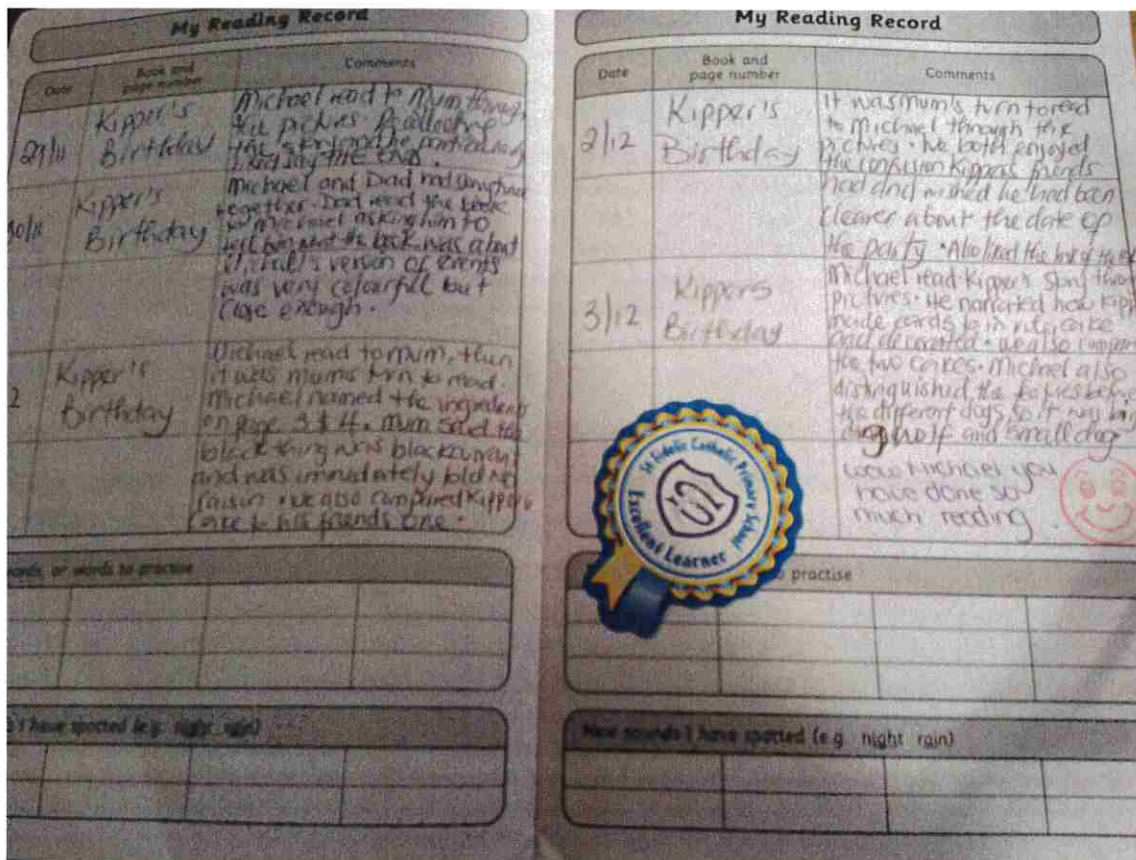 My Reading Record
Date
Book and
page number
Comments
29/11
Kipper's
Birthday
Michael read to Mum through
the pictures.
the story and he particularly
Kipper's
Birthday
Michael and Dad had
together. Dad read the book
to Michael asking him to
tell him what the book was about
Michael's version of events
was very colourful but
close enough.
2
Kipper's
Birthday
Michael read to mum, then
it was mums turn to read.
Michael named the ingredients
on page 3 & 4. Mum said the
black thing was
and was immediately told no
raisin. We also compared Kipper's
to his friends one.
words, or words to practise
I have spotted (e.g. night rain)
My Reading Record
Date
Book and
page number
Comments
2/12
Kipper's
Birthday
It was mum's turn to read
to Michael through the
pictures. We both enjoyed
the confusion Kippers friends
had and wished he had been
clearer about the date of
the party. Also liked the
3/12
Kippers
Birthday
Michael read Kipper's story
pictures. He narrated how
made cards
and decorated. we also
the two cakes. Michael also
distinguished the
the different dogs so it was
wolf and small dog
wow Michael you
have done so
much reading.
St Fidelis Catholic Primary School
Excellent Learner
practise
New sounds I have spotted (e.g. night rain)